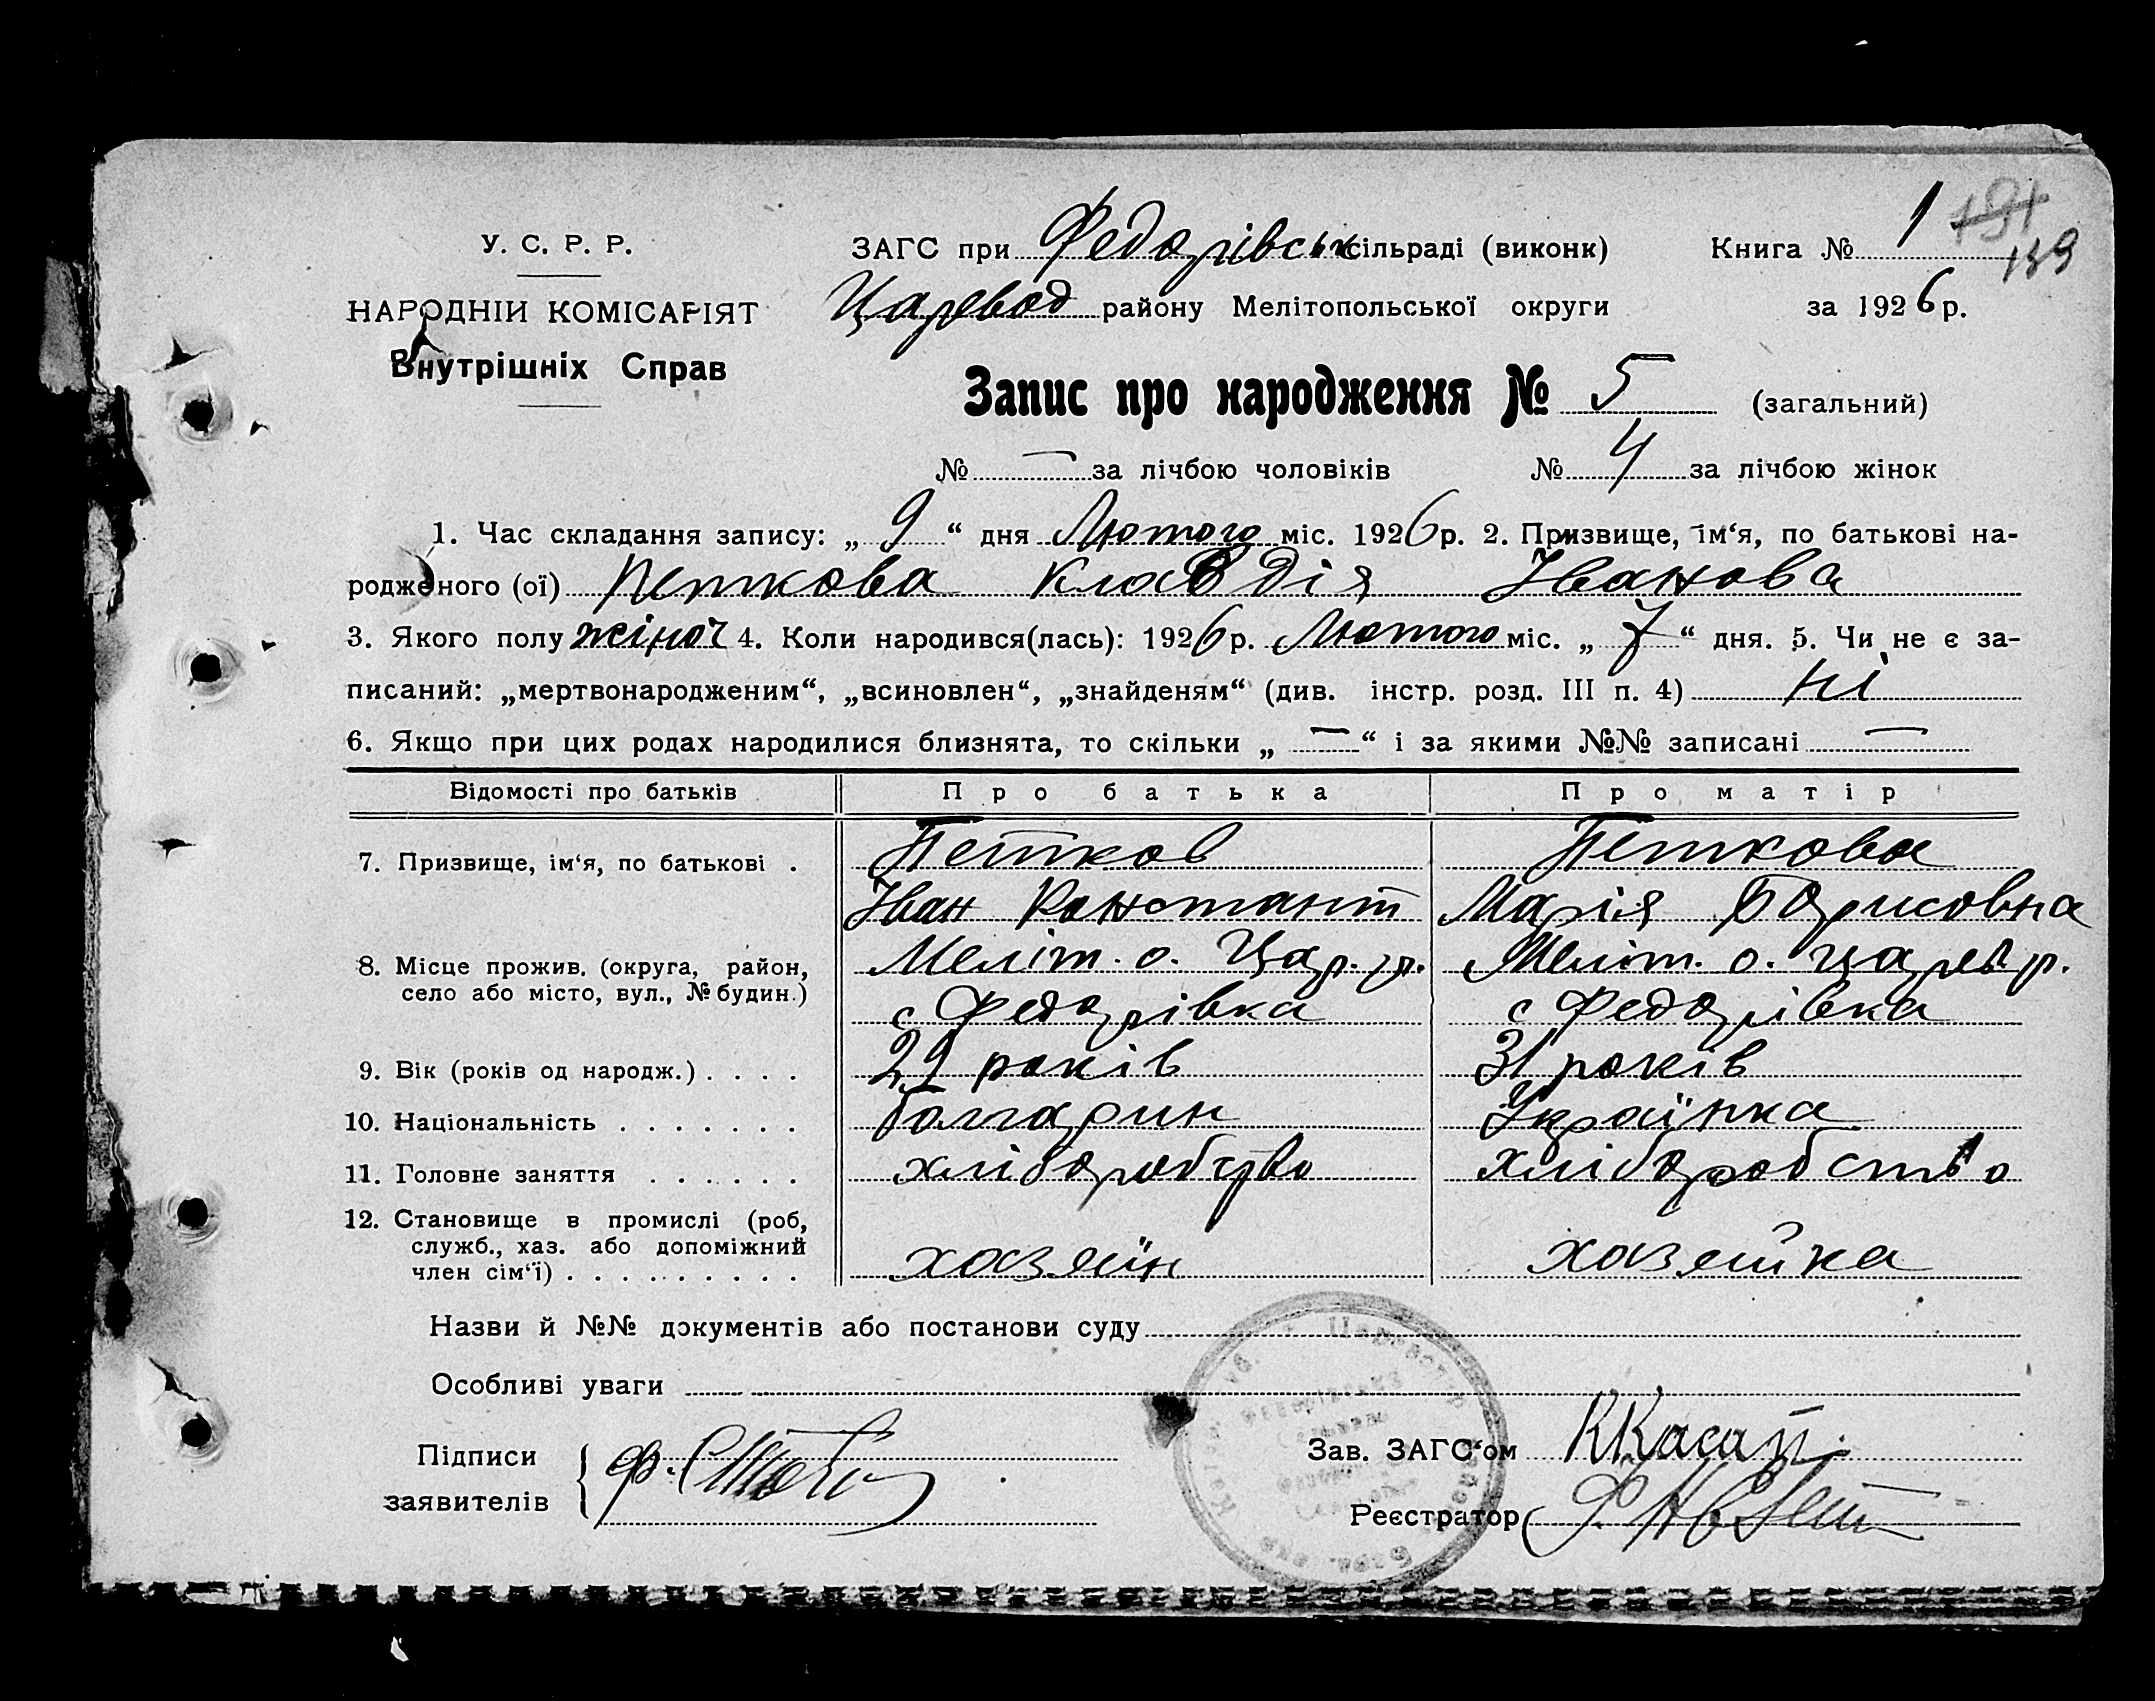 У. С. Р. Р.
НАРОДНІИ КОМІСАРІЯТ
Внутрішніх Справ
ЗАГС при Федорівськ сільраді (виконк) Книга № 1 191
139
Царевод району Мелітопольської округи за 1926 р.
Запис про народження № 5 (загальний)
№ — за лічбою чоловіків № 4 за лічбою жінок
1. Час складання запису: „ 9 “ дня Лютого міс. 1926 р. 2. Призвище, ім‘я, по батькові на-
родженого (ої) Петкова Клавдія Іванова
3. Якого полу жіночї 4. Коли народився(лась): 1926 р. Лютого міс. „ 7 “ дня. 5. Чи не є за-
писаний: „мертвонародженим“, „всиновлен“, „знайденям“ (див. інстр. розд. III п. 4) ні
6. Якщо при цих родах народилися близнята, то скільки „ — “ і за якими №№ записані —
Відомості про батьків Про батька Про матір
7. Призвище, ім‘я, по батькові . Петков Петкова
Іван Констант Марія Борисовна
8. Місце прожив. (округа, район, Меліт. о. Цар. р. Меліт. о. Царев р.
село або місто, вул., № будин.) с Федорівка с Федорівка
9. Вік (років од народж.) . . . . 22 років 31 років
10. Національність . . . . . . . болгарин Українка
11. Головне заняття . . . . . . хліборобство хліборобство
12. Становище в промислі (роб,
служб., хаз. або допоміжний
член сім‘ї) . . . . . . . . . хазяїн хазяйка
Назви й №№ документів або постанови суду
Особливі уваги
Підписи
заявителів
Зав. ЗАГС‘ом
Реєстратор